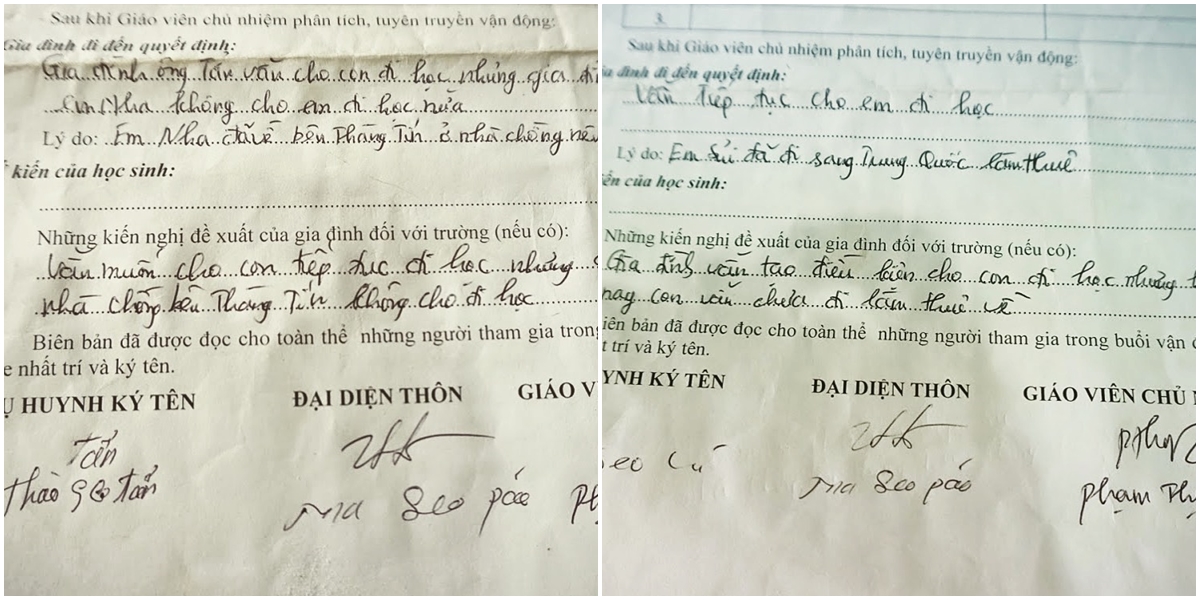 Sau khi Giáo viên chủ nhiệm phân tích, tuyên truyền vận động:
Gia đình đi đến quyết định:
Gia đình ông Tấn vẫn cho con đi học nhưng gia đì
em Nha không cho em đi học nữa
Lý do: Em Nha đã về bên Thàng Tín ở nhà chồng nên
kiến của học sinh:
Những kiến nghị đề xuất của gia đình đối với trường (nếu có):
Vẫn muốn cho con tiếp tục đi học nhưng
nhà chồng bên Thàng Tín không cho đi học
Biên bản đã được đọc cho toàn thể những người tham gia trong
e nhất trí và ký tên.
Ụ HUYNH KÝ TÊN ĐẠI DIỆN THÔN GIÁO V
Tấn
Thào Seo Tấn Ma Seo Páo
3.
Sau khi Giáo viên chủ nhiệm phân tích, tuyên truyền vận động:
ia đình đi đến quyết định:
Vẫn tiếp tục cho em đi học
Lý do: Em Sủi đã đi sang Trung Quốc làm thuê
ến của học sinh:
Những kiến nghị đề xuất của gia đình đối với trường (nếu có):
Gia đình vẫn tạo điều kiện cho con đi học nhưng
nay con vẫn chưa đi làm thuê về
iên bản đã được đọc cho toàn thể những người tham gia trong buổi vận
t trí và ký tên.
YNH KÝ TÊN ĐẠI DIỆN THÔN GIÁO VIÊN CHỦ
Ma Seo Páo Phạm Th